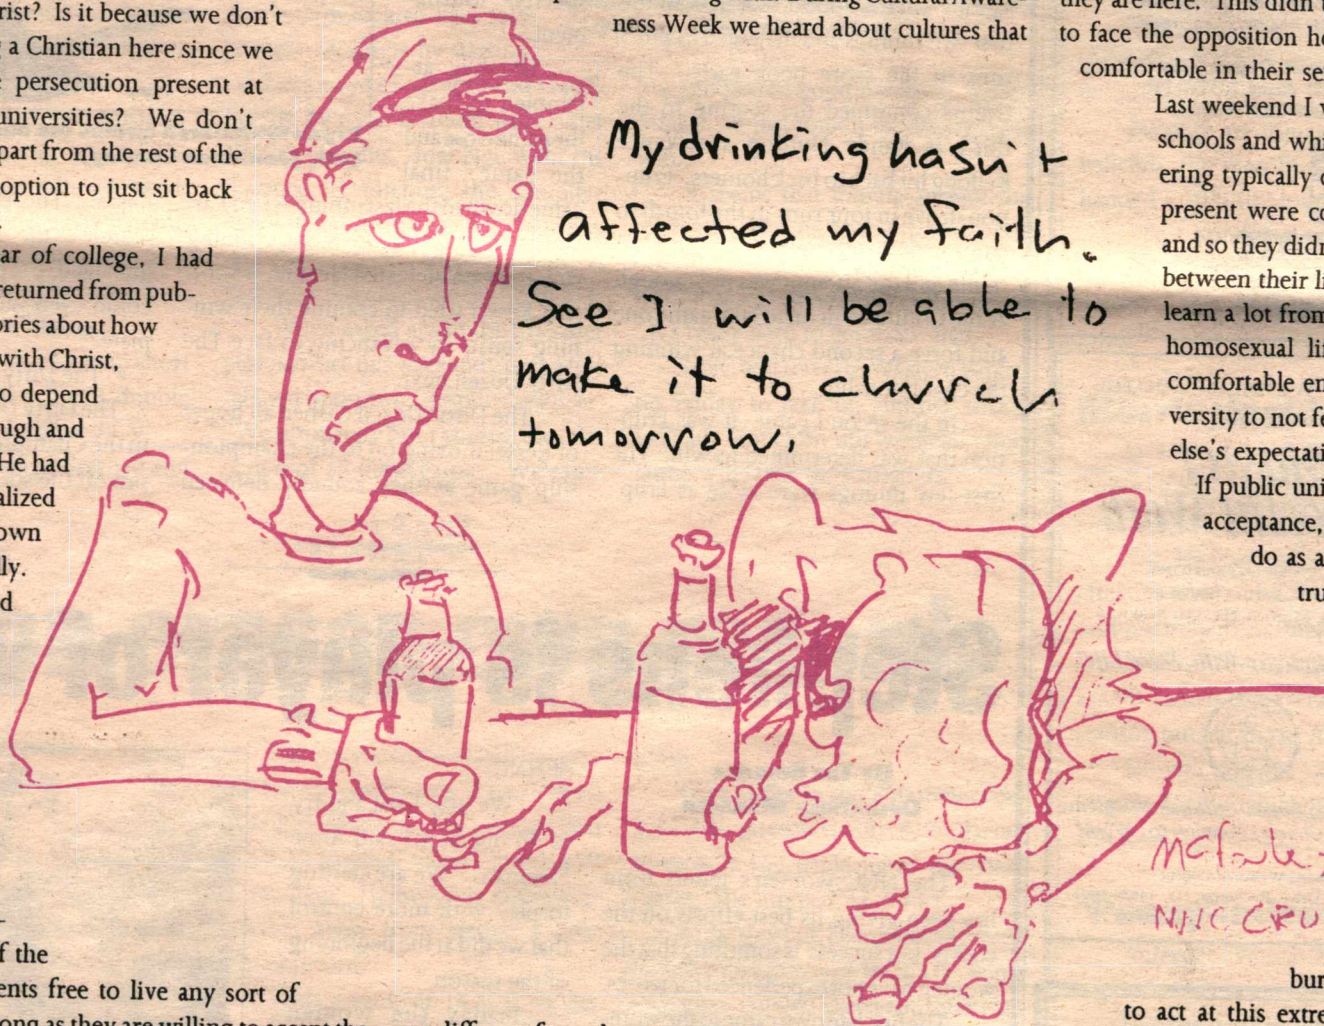 rist? Is it because we don't
a Christian here since we
persecution present at
universities? We don't
part from the rest of the
option to just sit back
ar of college, I had
returned from pub-
ories about how
with Christ,
o depend
ugh and
He had
alized
own
lly.
d
f the
ents free to live any sort of
ong as they are willing to accept the
ness Week we heard about cultures that
My drinking hasn't
affected my faith.
See I will be able to
make it to church
tomorrow.
they are here. This didn
to face the opposition
comfortable in their se
Last weekend I
schools and
ering typically
present were
and so they
between their
learn a lot from
homosexual
comfortable
versity to not
else's
If public uni
acceptance,
do as a
tru
NNC
bur
to act at this extre